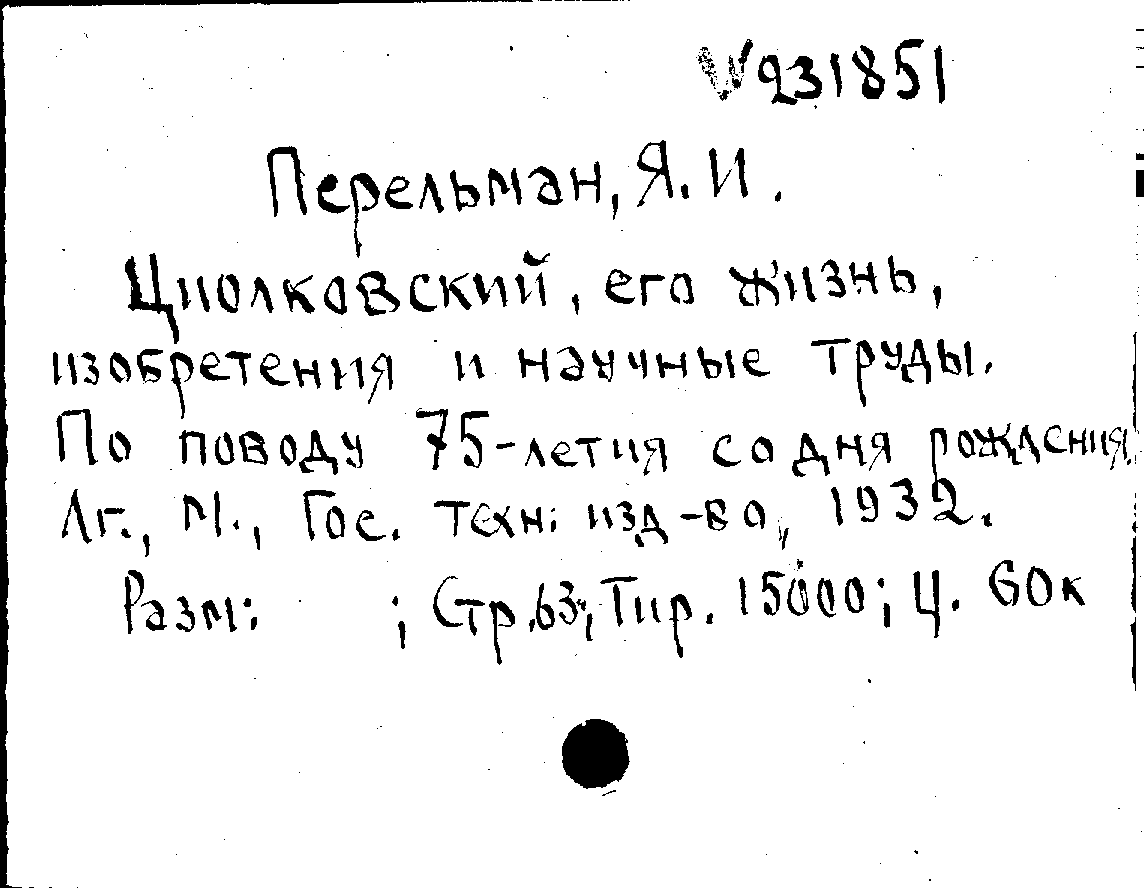 W231851
Перельман, Я. И.
Циолковский, его жизнь,
изобретения и научные труды.
По поводу 75-летия со дня рождения.
Лг., М., Гос. техн. изд-во, 1932.
Разм: ; Стр. 63; Тир. 15000; Ц. 60к